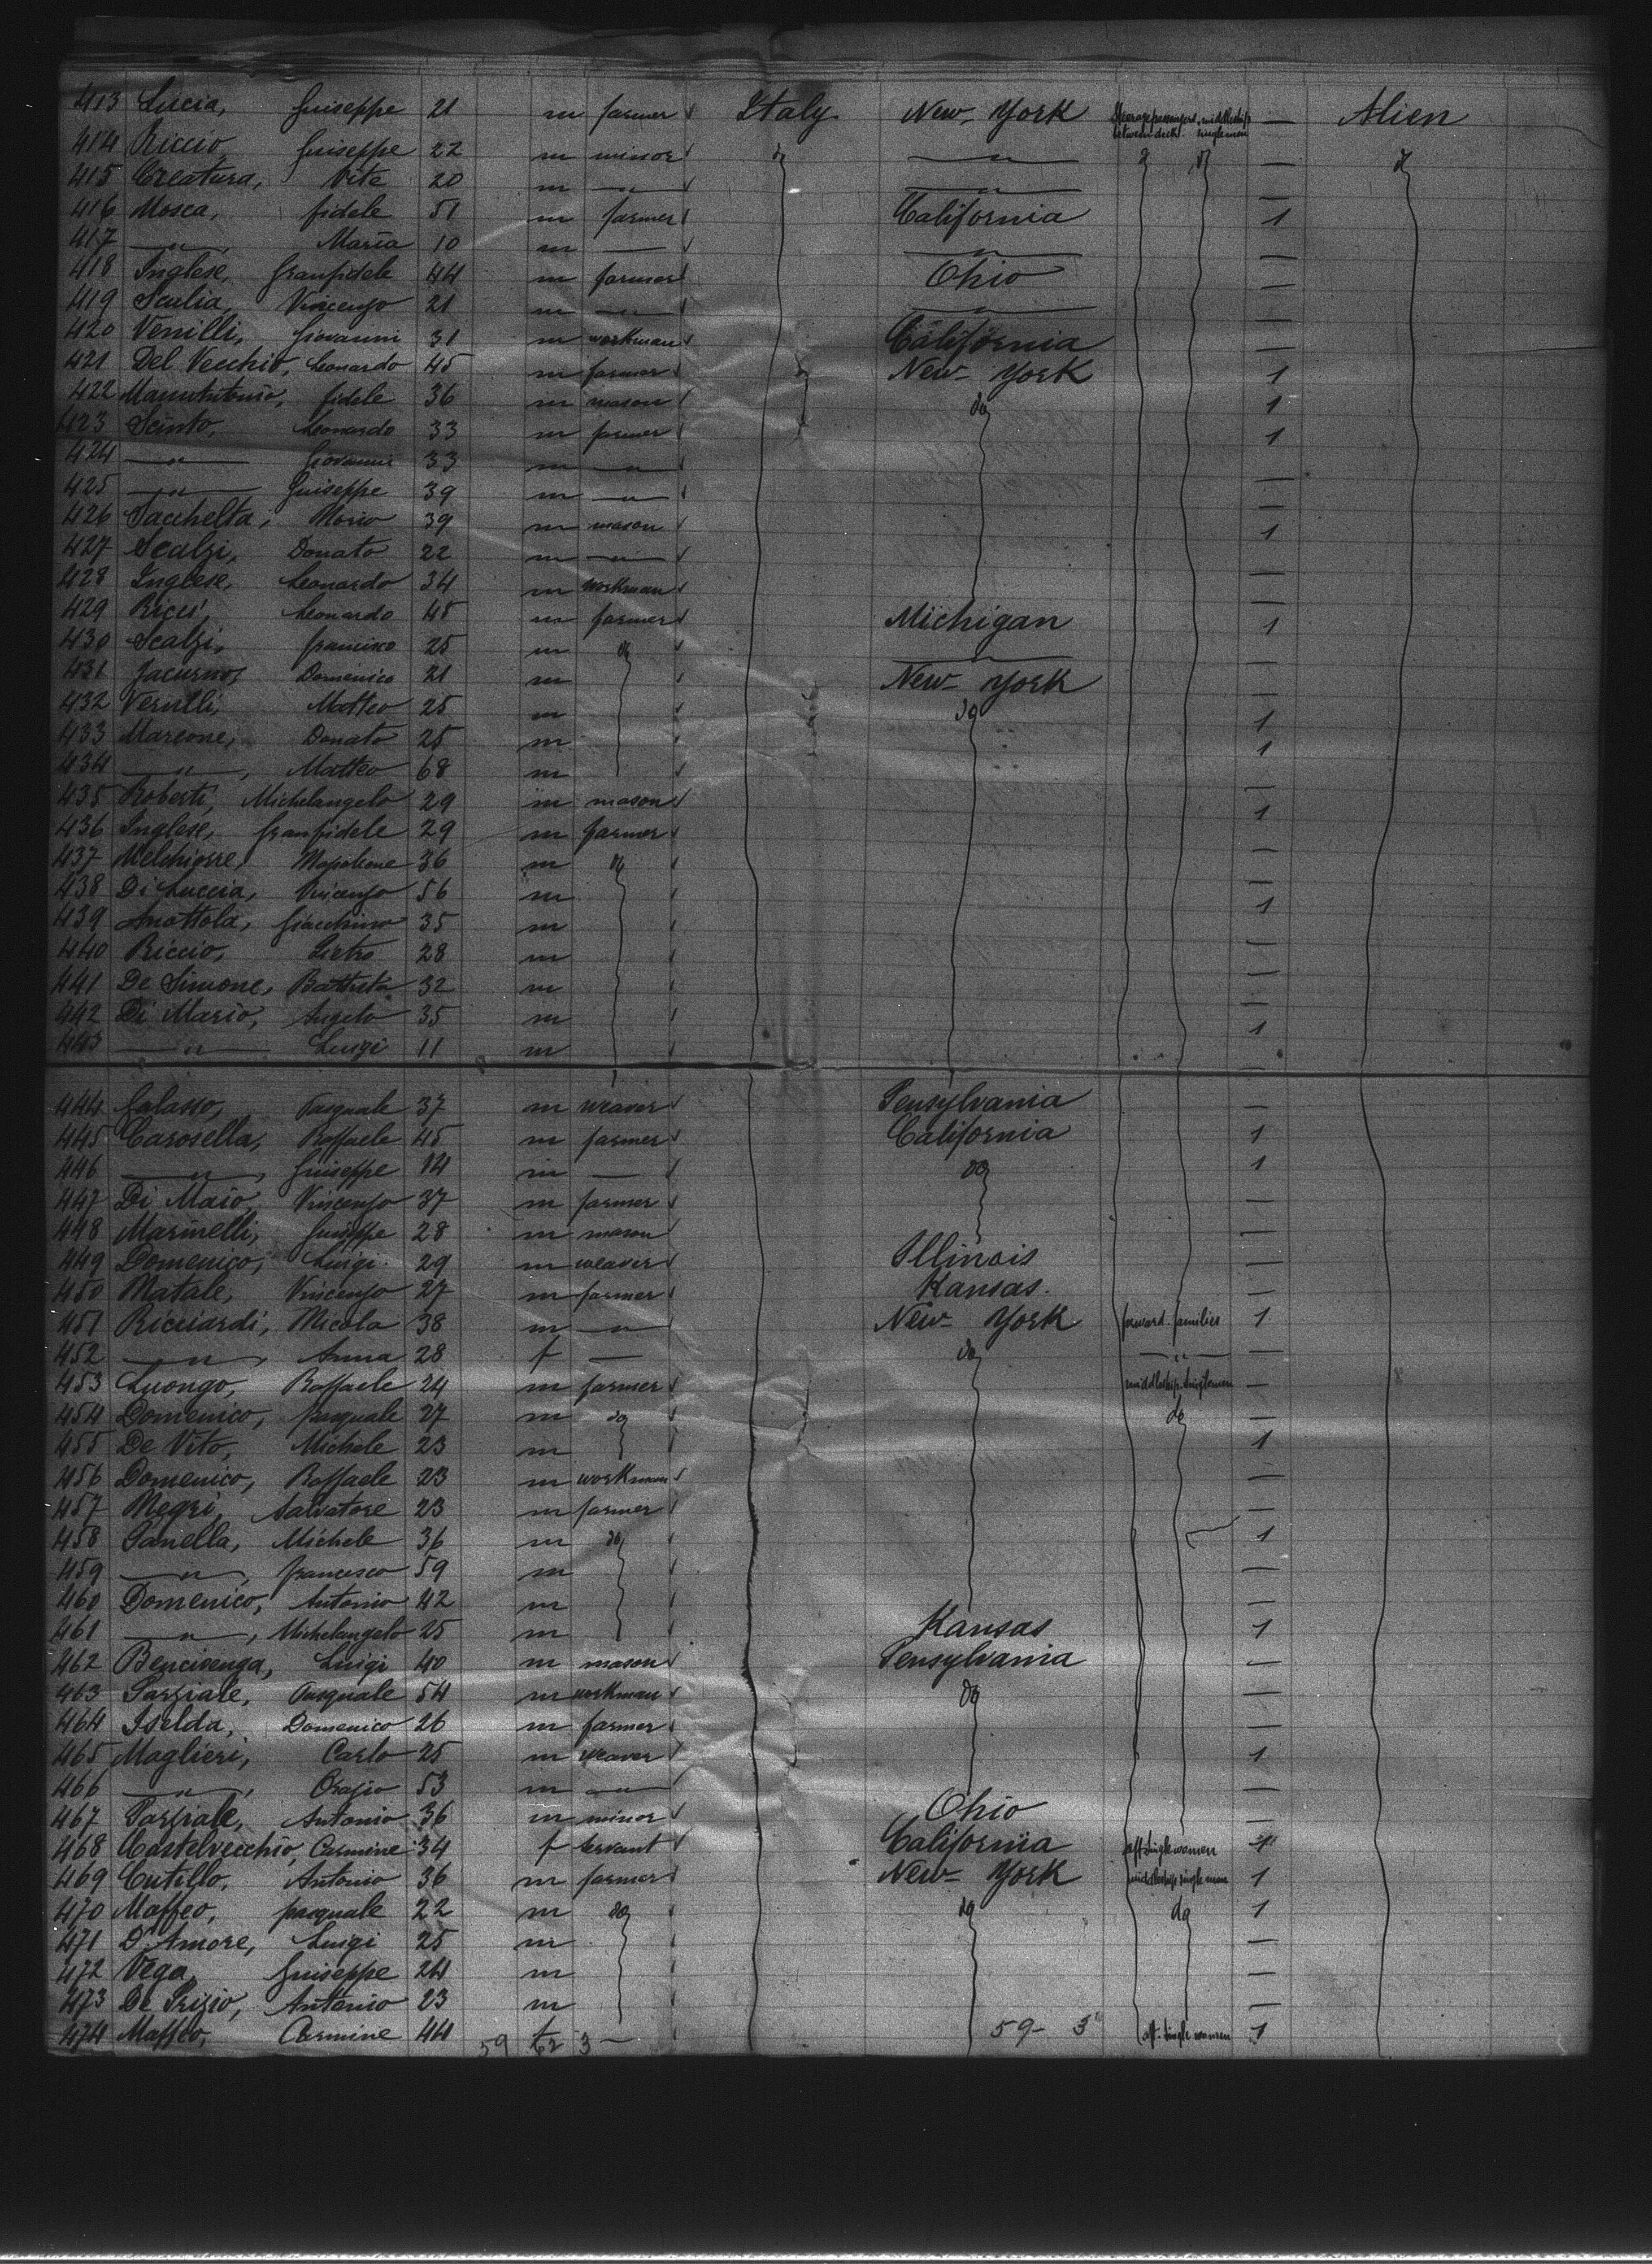 413 Lucia, Guiseppe 21 m farmer Italy New-York Steerage passengers, middleship between deck. singlemen — Alien
414 Riccio Guiseppe 22 m minor do —"— do do — do
415 Creatura, Vite 20 m —"— —"— —
416 Mosca, fidele 51 m farmer California 1
417 —"—, Maria 10 m — —"— —
418 Inglese, Granfidele 44 m farmer Ohio —
419 Scalia, Vincenzo 21 m —"— —"— —
420 Venilli, Giovanni 31 m workman California —
421 Del Vecchio, Leonardo 45 m farmer New-York 1
422 fidele 36 m mason do 1
423 Scinto, Leonardo 33 m farmer 1
424 —"— Giovanni 33 m —"— —
425 —"— Guiseppe 39 m —"— —
426 Sacchetta, 39 m mason 1
427 Scalzi, Donato 22 m —"— —
428 Inglese, Leonardo 34 m workman —
429 Ricci, Leonardo 45 m farmer Michigan 1
430 Scalzi, francisco 25 m do —"— —
431 Jacurno, Domenico 21 m New-York —
432 Verulli, Matteo 25 m do 1
433 Marcone, Donato 25 m 1
434 —"—, Matteo 68 m —
435 Roberti, Michelangelo 29 m mason 1
436 Inglese, Granfidele 29 m farmer —
437 Melchiorre, Napoleone 36 m do —
438 Di Luccia, Vincenzo 56 m 1
439 Anottola, Giacchino 35 m —
440 Riccio, Pietro 28 m —
441 De Simone, Battista 32 m —
442 Di Mario, Angelo 35 m 1
443 —"— Luigi 11 m —
444 Galasso, Pasquale 37 m weaver Pensylvania —
445 Carosella, Raffaele 45 m farmer California 1
446 —"—, Guiseppe 14 m — do 1
447 Di Maio, Vincenzo 37 m farmer —
448 Marinelli, Guiseppe 28 m mason —
449 Domenico, Luigi 29 m weaver Illinois —
450 Natale, Vincenzo 27 m farmer Kansas. —
451 Ricciardi, Nicola 38 m —"— New-York forward. families 1
452 —"—, Anna 28 f — do —"— —
453 Luongo, Raffaele 24 m farmer middleship. singlemen —
454 Domenico, pasquale 27 m do do —
455 De Vito, Michele 23 m 1
456 Domenico, Raffaele 23 m workman —
457 Negri, Salvatore 23 m farmer —
458 Panella, Michele 36 m do 1
459 —"—, francesco 59 m —
460 Domenico, Antonio 42 m —
461 —"—, Michelangelo 25 m Kansas 1
462 Bencivenga, Luigi 40 m mason Pensylvania —
463 Parziale, Pasquale 54 m workman do —
464 Iselda, Domenico 26 m farmer —
465 Maglieri, Carlo 25 m weaver 1
466 —"—, Orazio 53 m —"— —
467 Parziale, Antonio 36 m minor Ohio —
468 Castelvecchio, Carmine 34 f servant California aft singlewomen 1
469 Cutillo, Antonio 36 m farmer New-York middleship single men 1
470 Maffeo, pasquale 22 m do do do 1
471 D'Amore, Luigi 25 m —
472 Vega, Guiseppe 24 m —
473 De Prizio, Antonio 23 m —
474 Maffeo, Carmine 44 f — aft. single women 1
59 3 59- 3